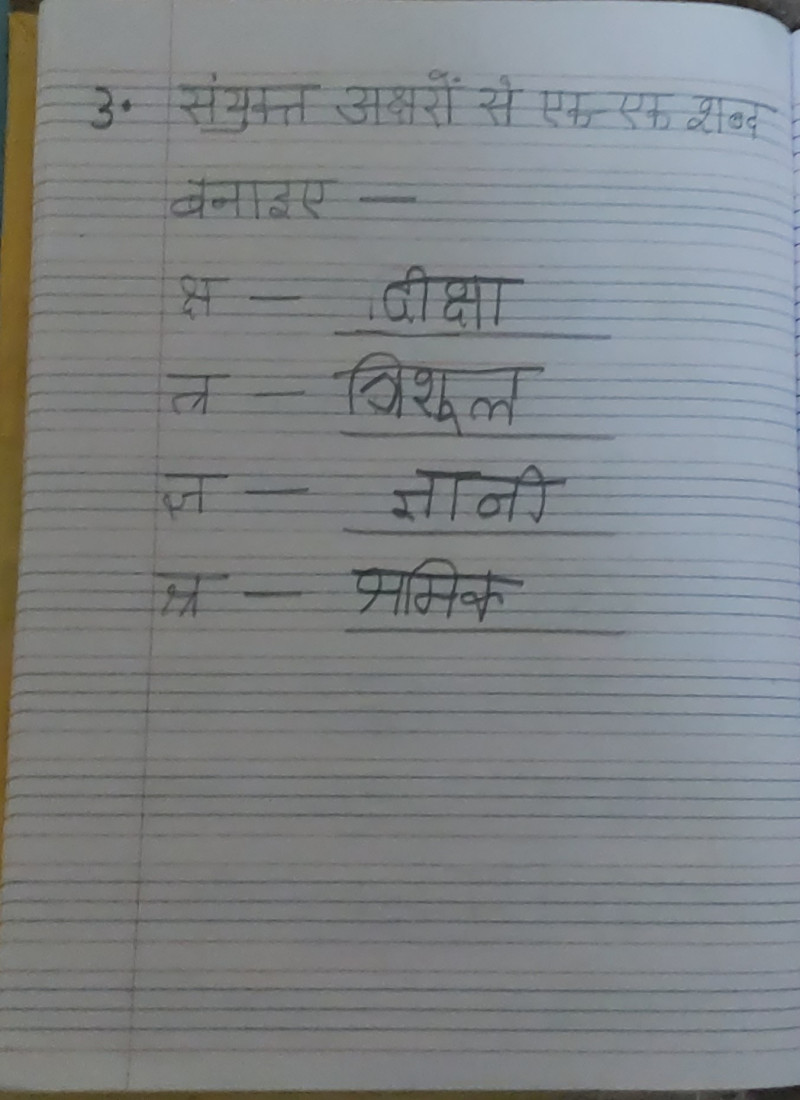 3. संयुक्त अक्षरों से एक-एक शब्द
बनाइए —
क्ष — दीक्षा
त्र — त्रिशूल
ज्ञ — ज्ञानी
श्र — श्रमिक